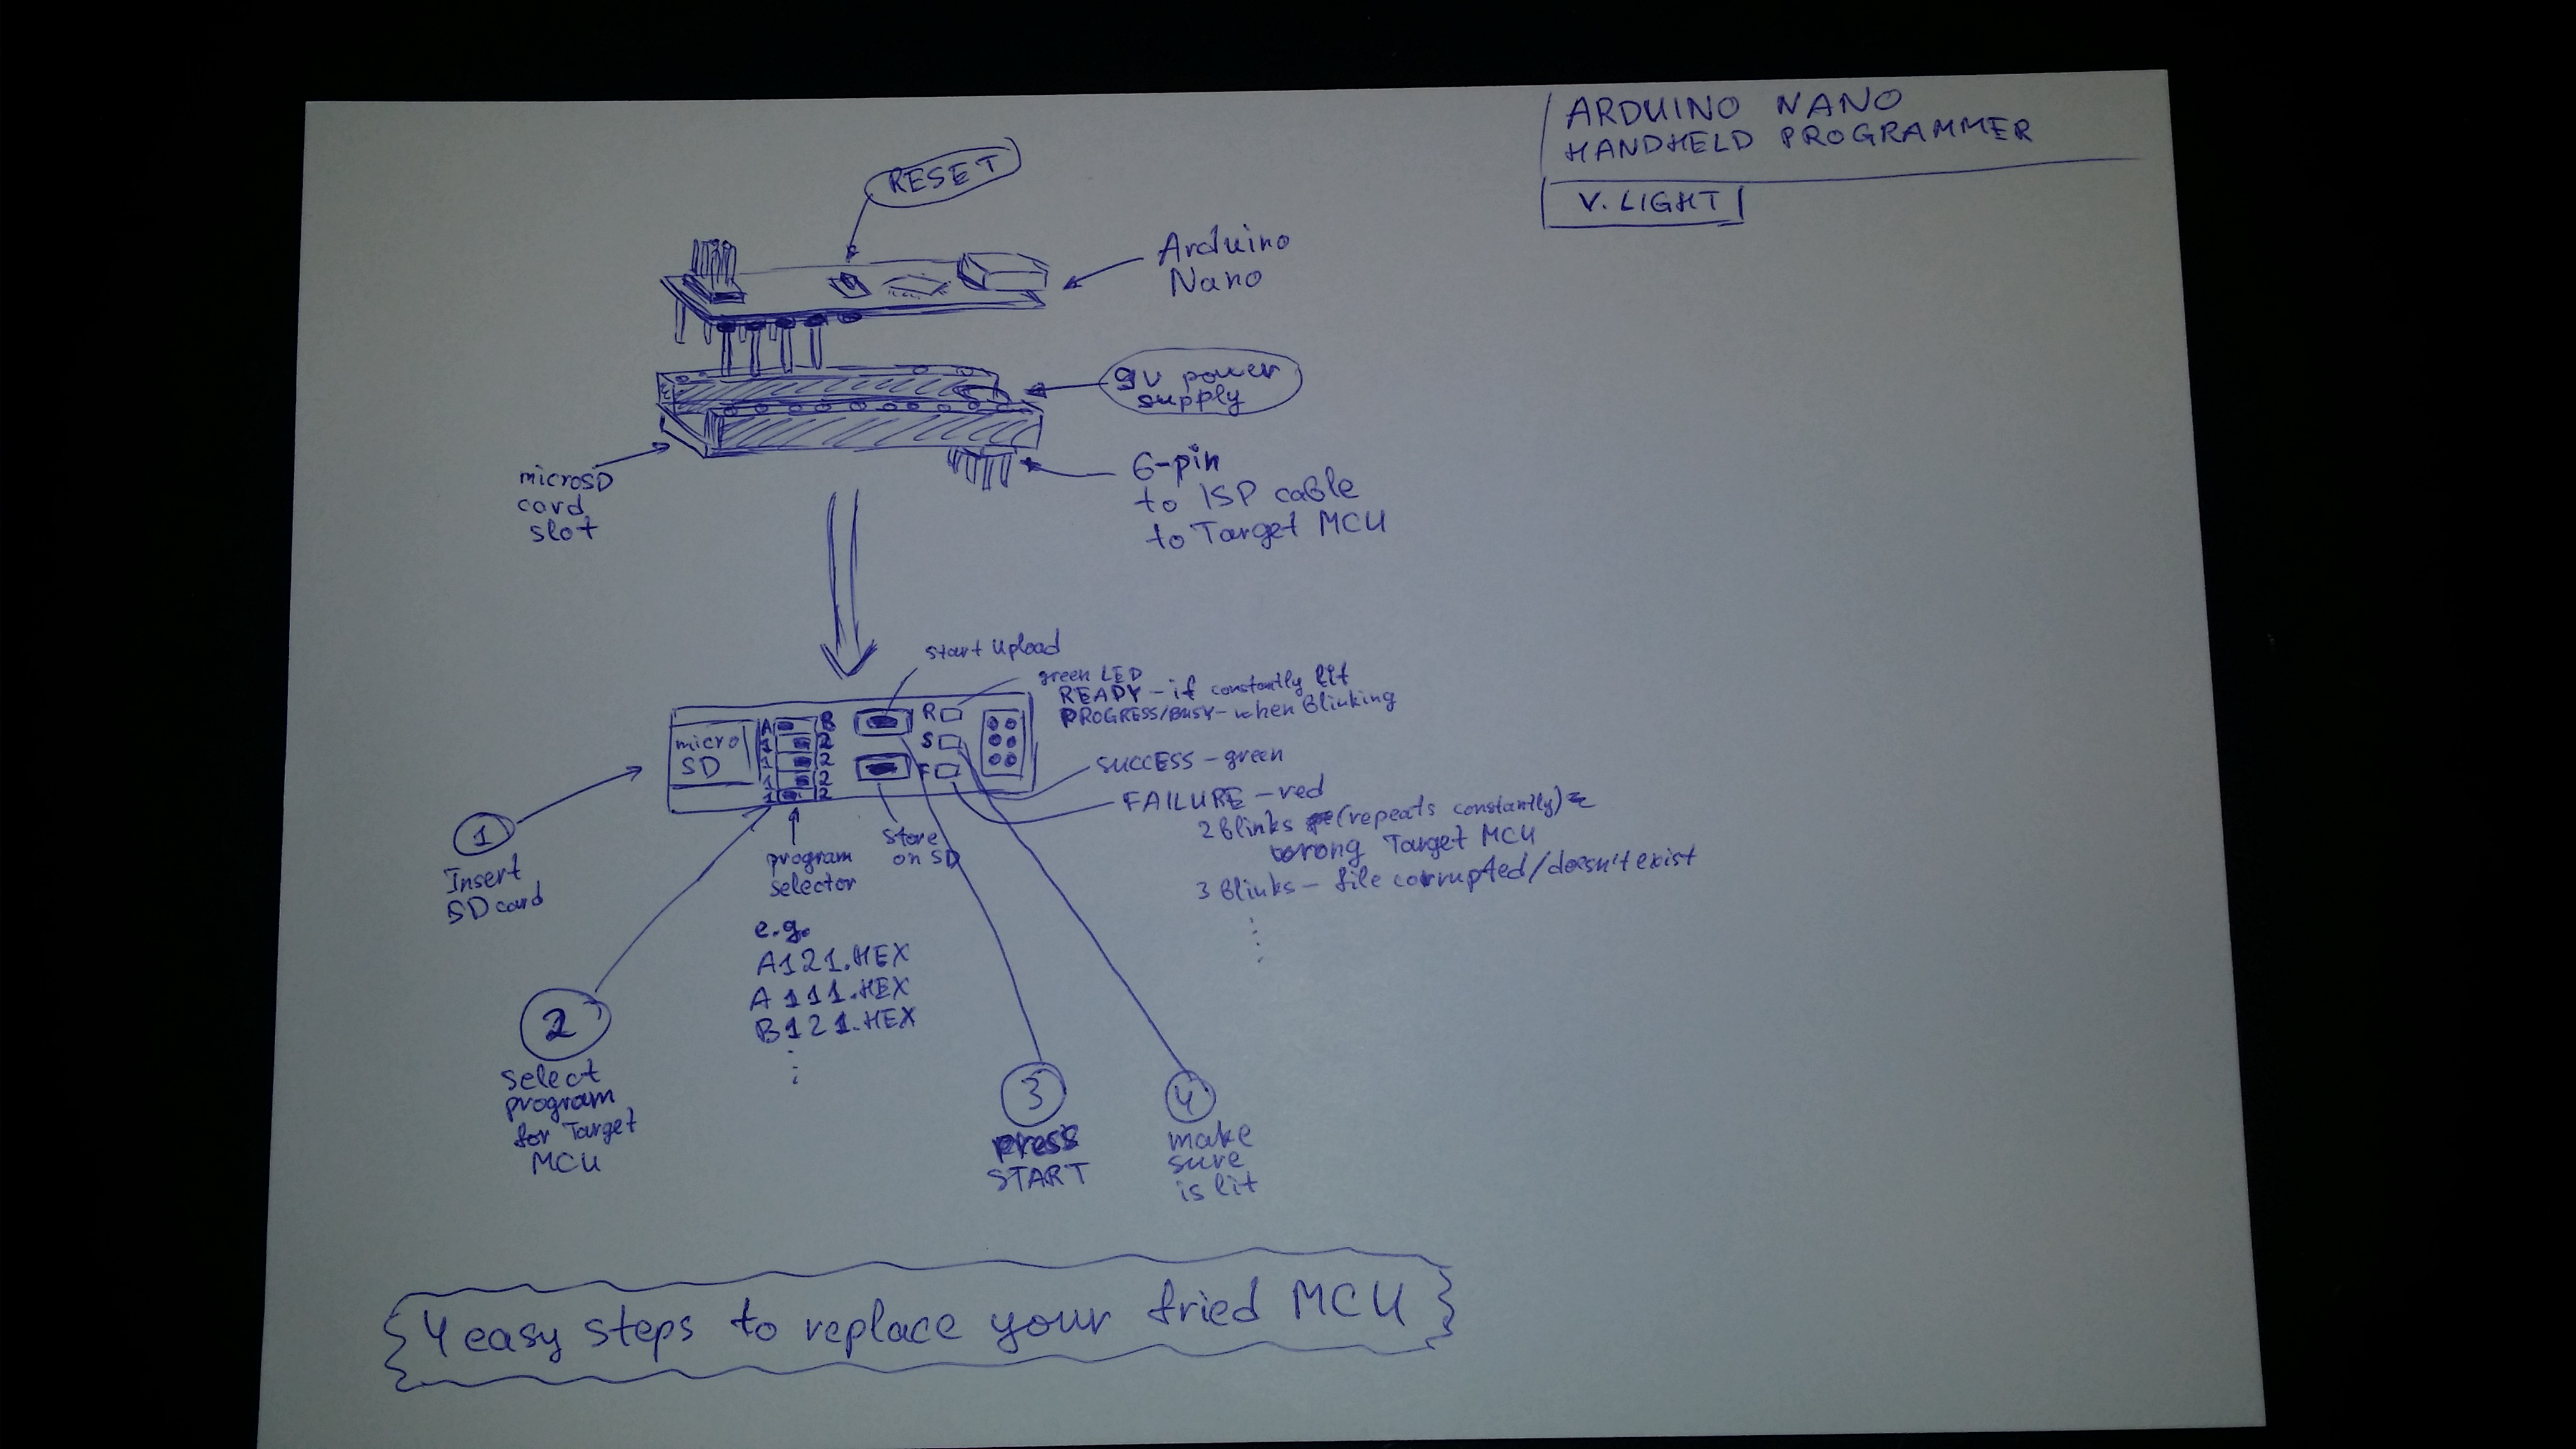 ARDUINO NANO
HANDHELD PROGRAMMER
V. LIGHT
RESET
Arduino
Nano
9V power
supply
microSD
card
slot
6-pin
to ISP cable
to Target MCU
start upload
green LED
READY - if constantly lit
PROGRESS/BUSY - when Blinking
A B
1 2
1 2
1 2
1 2
micro
SD
R
S
F
SUCCESS - green
FAILURE - red
2 Blinks (repeats constantly) =
wrong Target MCU
3 Blinks - file corrupted/doesn't exist
1
Insert
SD card
program
selector
store
on SD
e.g.
A121.HEX
A 111.HEX
B121.HEX
2
select
program
for Target
MCU
3
press
START
4
make
sure
is lit
4 easy steps to replace your fried MCU